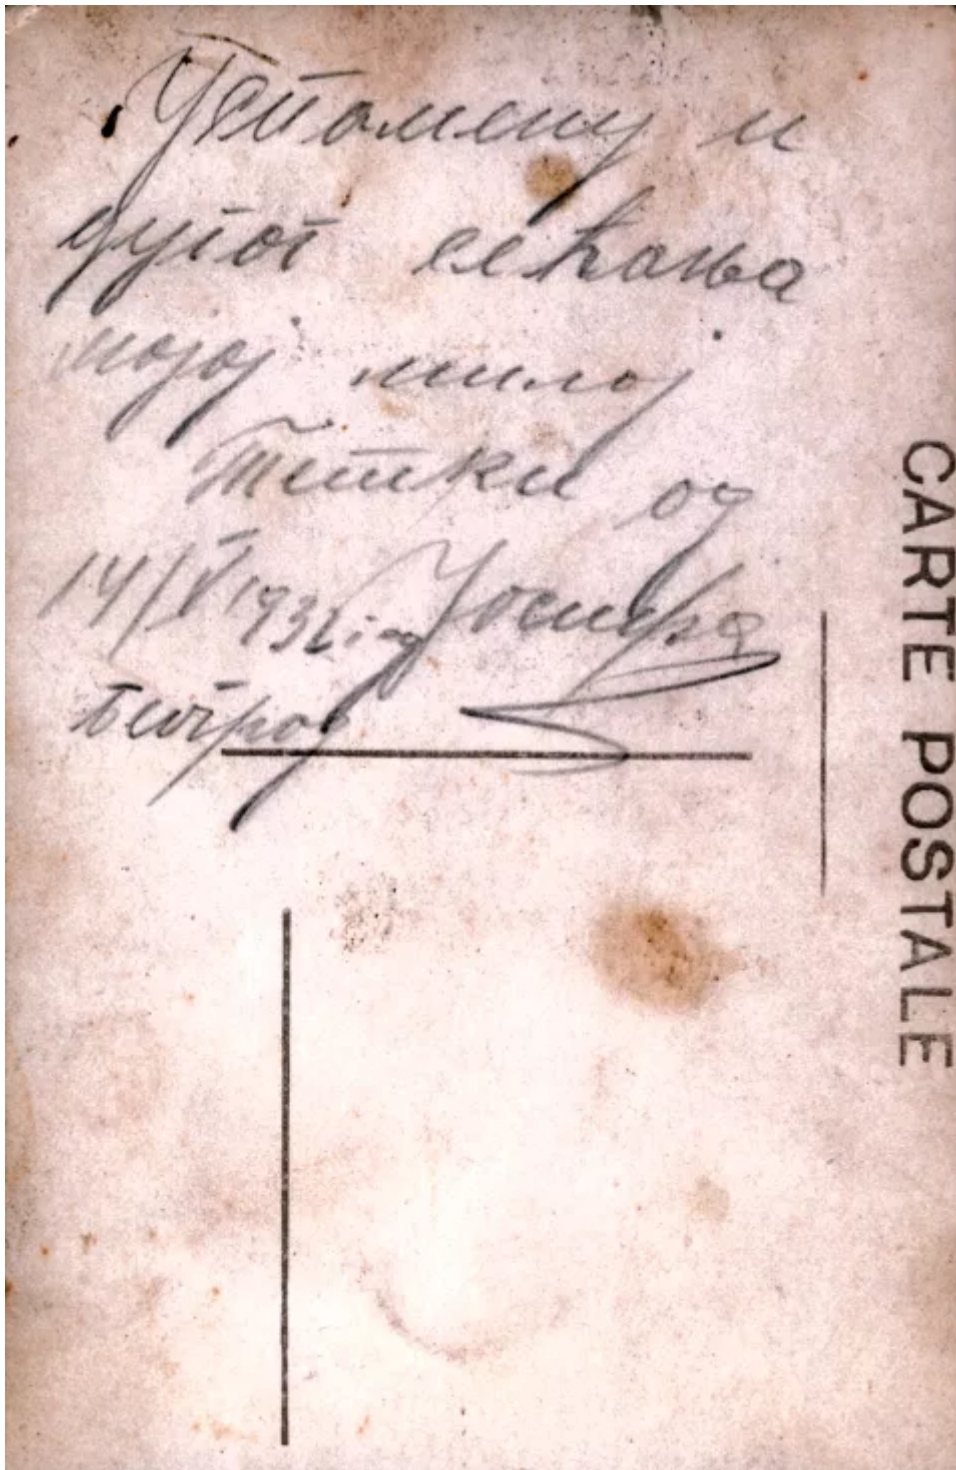 Успомену и
дугог сећања
мојој милој
Титки од
14/V 1932 год
Београд
CARTE POSTALE